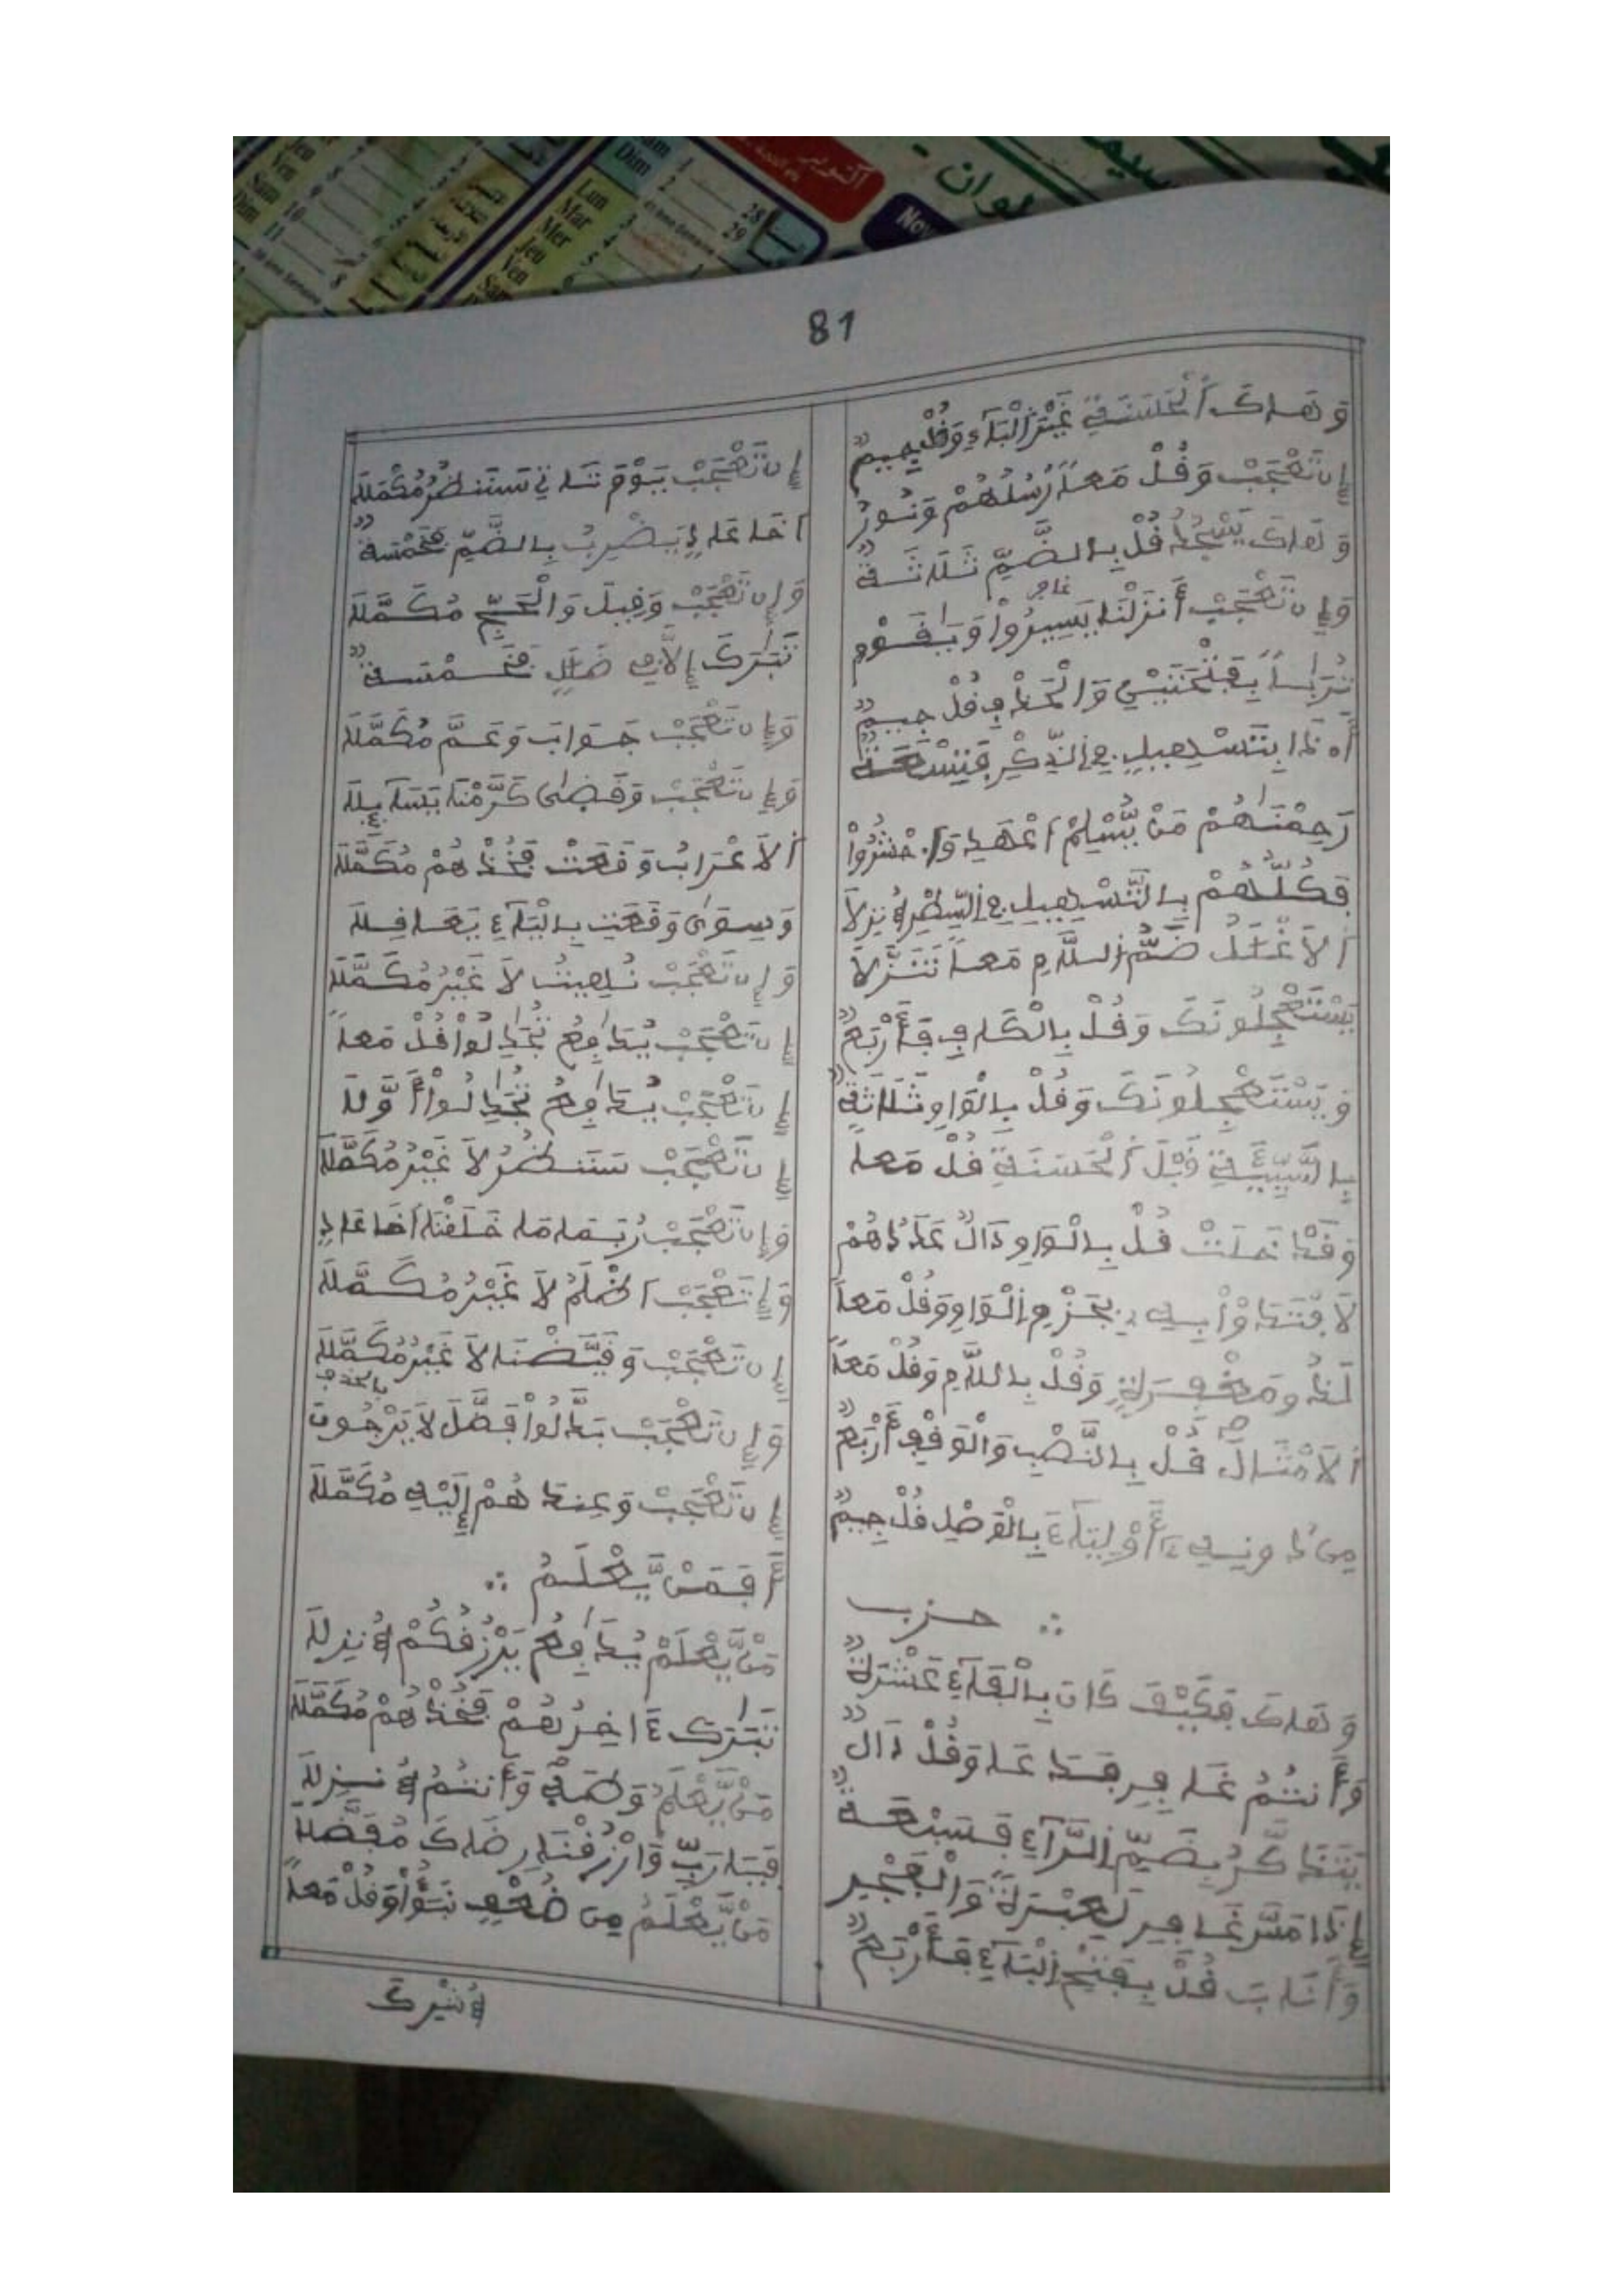 81
وَهَاكَ اَلْحَسَنَةِ غَيْرَ الْبَآءِ وَقُلْ جِيمٌ
إِن تَعْجَبْ وَقُلْ مَعاً رُسُلُهُمْ وَنُورُ
وَهَاكَ يَسْجُدُ قُلْ بِالضَّمِّ ثَلَاثَةٌ
وَإِن تَعْجَبْ أَنزَلْنَا يَسِيرُواْ وَيَٰقَوْمِ
تُرَٰباً وَالْحَذْفِ قُلْ جِيمٌ
أَ.ذَا بِتَسْهِيلٍ فِي الذِّكْرِ فَتِسْعَةٌ
رَجِعْنَٰهُمْ مَنْ يُّسْلِمْ أَعْهَدِ وَا.حْشُرُواْ
فَكُلُّهُمْ بِالتَّسْهِيلِ فِي السَّطْرِ نِزِلاَ
اَلاَغْلَٰلُ ضَمُّ اللَّامِ مَعاً تَنَزَّلاَ
يَسْتَعْجِلُونَكَ وَقُلْ بِالْكَافِ فَأَرْبَعٌ
وَيَسْتَعْجِلُونَكَ وَقُلْ بِالْوَاوِ ثَلَاثَةٌ
بِالسَّيِّئَةِ قَبْلَ اَلْحَسَنَةِ قُلْ مَعاً
وَقَدْ خَلَتْ قُلْ بِالْوَاوِ دَالٌ عَدَدُهُمْ
لاَفْتَدَوْاْ بِهِ بِجَزْمِ الْوَاوِ وَقُلْ مَعاً
لَذُو مَغْفِرَةٍ وَقُلْ بِاللَّامِ وَقُلْ مَعاً
اَلاَمْثَالَ قُلْ بِالنَّصْبِ وَالْوَقْفِ أَرْبَعٌ
مِن دُونِهِ أَوْلِيَآءَ بِالْوَصْلِ قُلْ جِيمٌ
حزب
وَهَاكَ فَكَيْفَ كَانَ بِالْفَآءِ عَشْرَةٌ
وَأَنتُمُ وَقُلْ دَالٌ
يَتَذَكَّرُ بِضَمِّ الرَّآءِ فَسَبْعَةٌ
إِذَا مَسَّ لَعِبْرَةً وَالْفَجْرِ
وَأَنَابَ قُلْ بِفَتْحِ الْبَآءِ فَأَرْبَعٌ
إِن تَعْجَبْ يَوْمَ تَاتِي سَتَنظُرُ مُكَمَّلَا
أَخَا عَادٍ يَضْرِبُ بِالضَّمِّ فَخَمْسَةٌ
وَإِن تَعْجَبْ وَقِيلَ وَالْحَجِّ مُكَمَّلَا
تَبَٰرَكَ ضَلَٰلٍ فَخَمْسَةٌ
وَإِن تَعْجَبْ جَوَابَ وَعَمَّ مُكَمَّلَا
وَإِن تَعْجَبْ وَقَضَىٰ كَرَّمْنَا
اَلاَعْرَابُ وَقَعَتْ فَخُذْهُمْ مُكَمَّلَا
وَسِوَىٰ وَقَعَتِ بِالْبَآءِ يَعَافِلَا
وَإِن تَعْجَبْ لاَ غَيْرُ مُكَمَّلَا
إِن تَعْجَبْ يُدَٰفِعُ تُجَٰدِلُواْ قُلْ مَعاً
إِن تَعْجَبْ يُدَٰفِعُ تُجَٰدِلُواْ أَوَّلَا
إِن تَعْجَبْ سَتَنظُرُ لاَ غَيْرُ مُكَمَّلَا
وَإِن تَعْجَبْ رُبَمَا مَا خَلَقْنَا أَخَا عَادٍ
وَإِن تَعْجَبْ أَظْلَمُ لاَ غَيْرُ مُكَمَّلَا
إِن تَعْجَبْ وَقَيَّضْنَا لاَ غَيْرُ مُكَمَّلَا
وَإِن تَعْجَبْ بَدَّلُواْ فَضَّلَ لاَ يَرْجُونَ
إِن تَعْجَبْ وَعِندَهُمْ إِلَيْهِ مُكَمَّلَا
أَفَمَنْ يَّعْلَمُ
مَنْ يَّعْلَمْ يُدَٰفِعُ يَرْزُقُكُمْ نِزِلَا
تَبَٰرَكَ ءَاخِرُهُمْ فَخُذْهُمْ مُكَمَّلَا
مَنْ يَّعْلَمُ وَأَنتُمُ نِزِلَا
فَيَا رَبِّ وَارْزُقْنَا رِضَاكَ مُفَضَّلَا
مَنْ يَّعْلَمُ مِن ضُعْفٍ نَبَؤُاْ وَقُلْ مَعاً